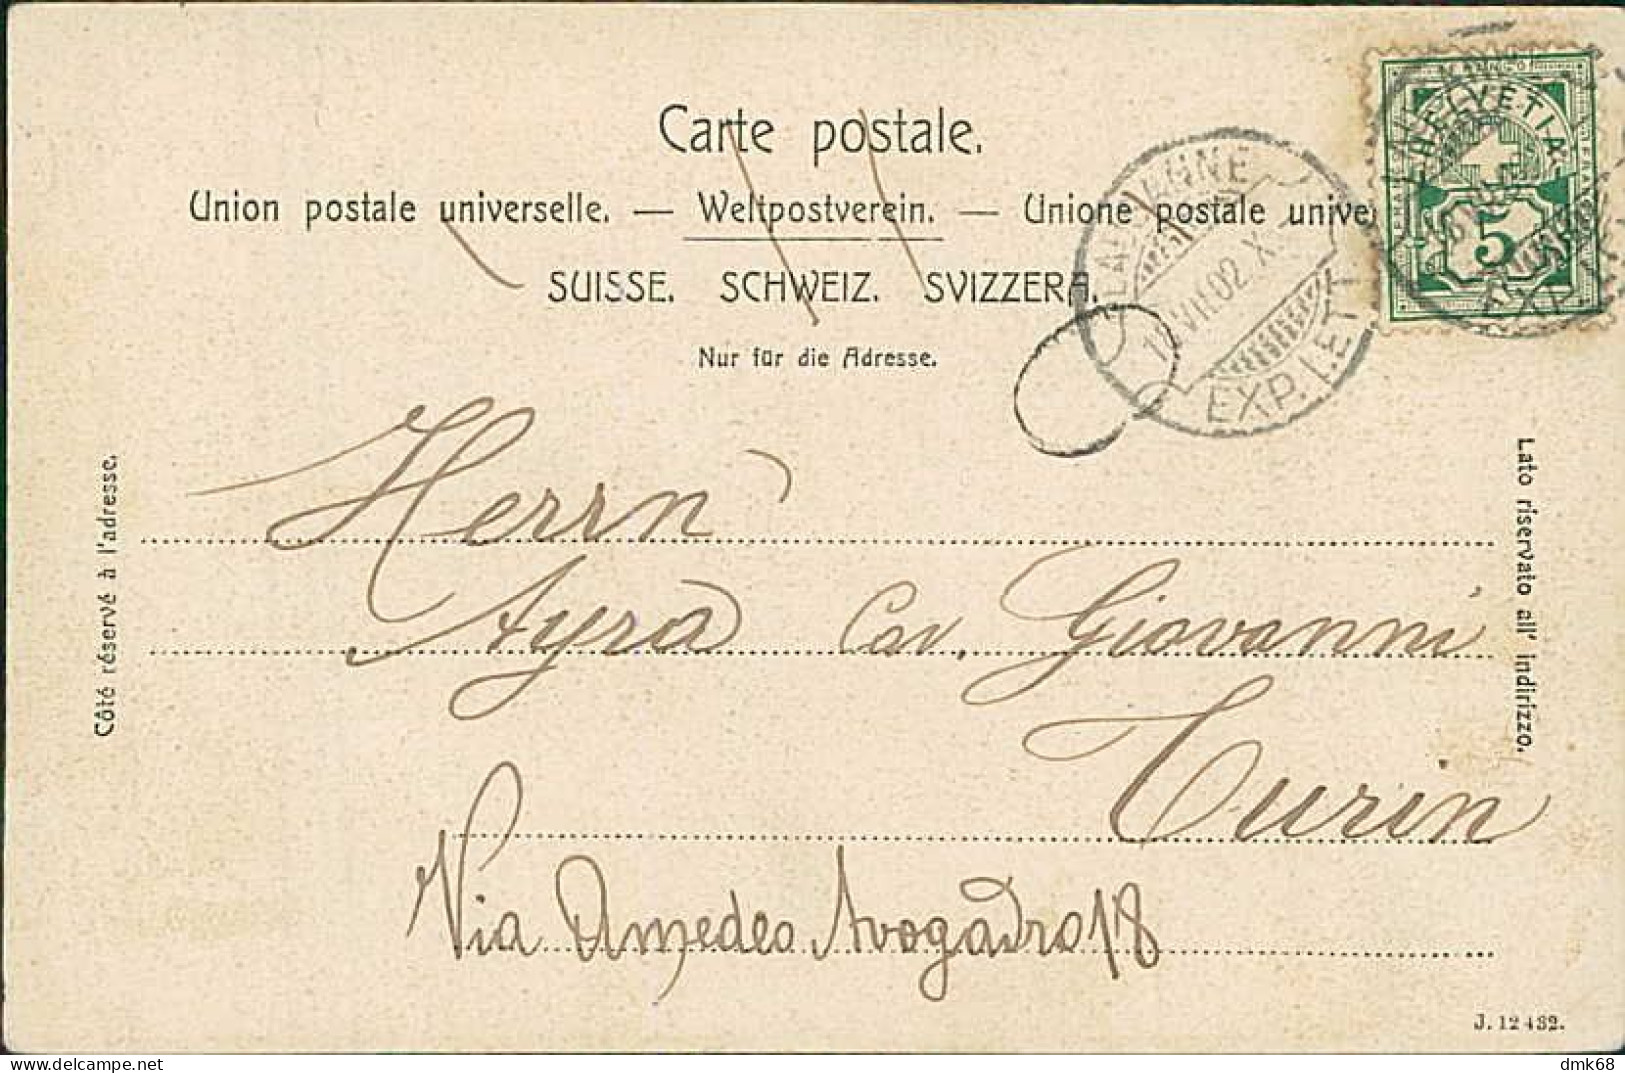 Carte postale.
Union postale universelle. — Weltpostverein. — Unione postale unive
SUISSE. SCHWEIZ. SVIZZERA.
Nur für die Adresse.
LAUSANNE
VII.02.X
EXP. LETT
FRANCO
HELVETIA
5
EXP.
Côté réservé à l'adresse.
Lato riservato all' indirizzo.
Herrn
Ayra Cav. Giovanni
Turin
Via Amedeo Avogadro 18
J. 12 432.
dmk68